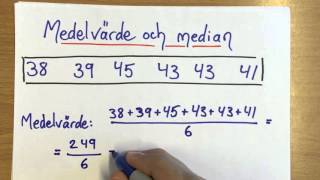 Medelvärde och median
38 39 45 43 43 41
Medelvärde: 38+39+45+43+43+41 =
6
= 249
6